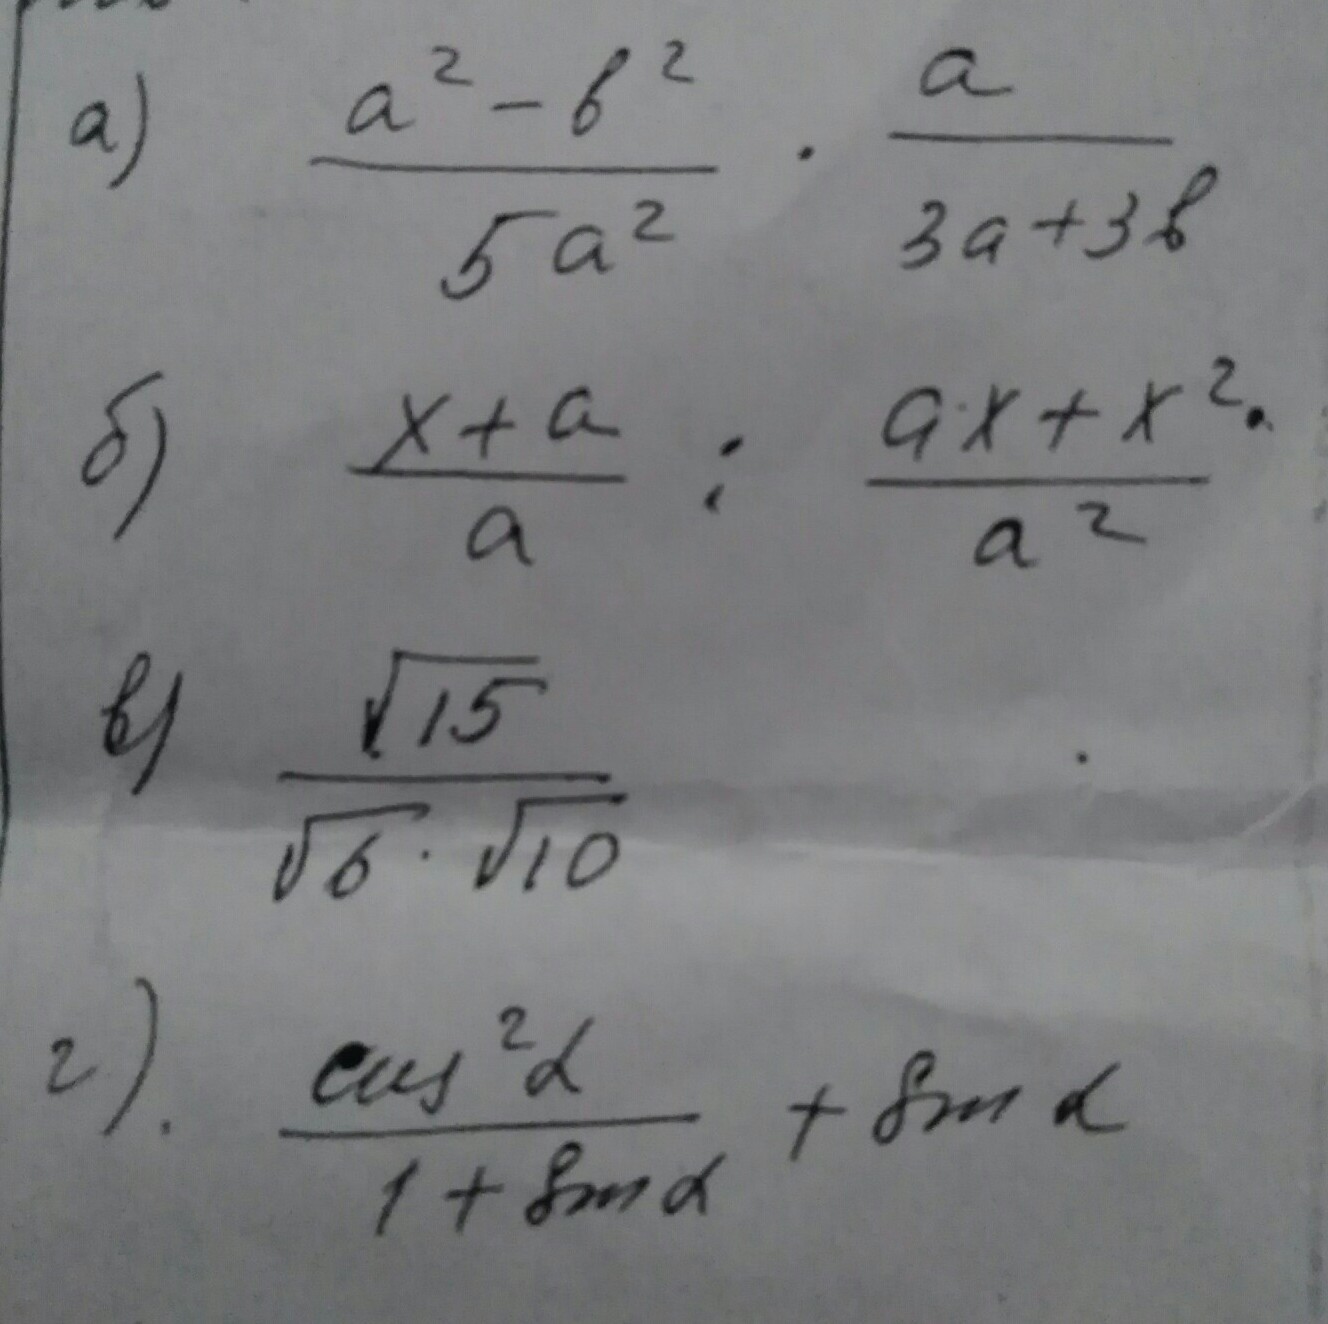 а) (a² - b²)/(5a²) · a/(3a+3b)
б) (x+a)/a : (ax+x²)/a²
в) √15/(√6 · √10)
г). cos²α/(1+sinα) + sinα